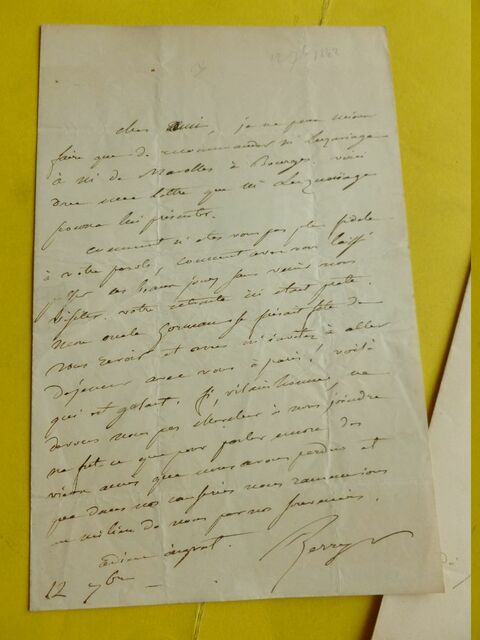 12 7b 1842
cher ami, je ne peux mieux
faire que de recommander Mr
à Mr de Marolles à Bourges. voici
une lettre que Mr
pourra lui présenter.
comment n'êtes vous pas plus fidèle
à votre parole! comment avez vous laissé
ces beaux jours sans venir nous
visiter. votre retraite ici était prête.
Mon oncle se faisait fête de
vous revoir et vous m'invitez à aller
déjeuner avec vous à paris! voilà
qui est galant. fi, vilain homme, ne
devons nous pas chercher à nous joindre
ne fut-ce que pour parler encore des
vieux amis que nous avons perdus et
que dans nos nous ramenions
au milieu de nous par nos souvenirs.
adieu ingrat.
Berry
12 7bre